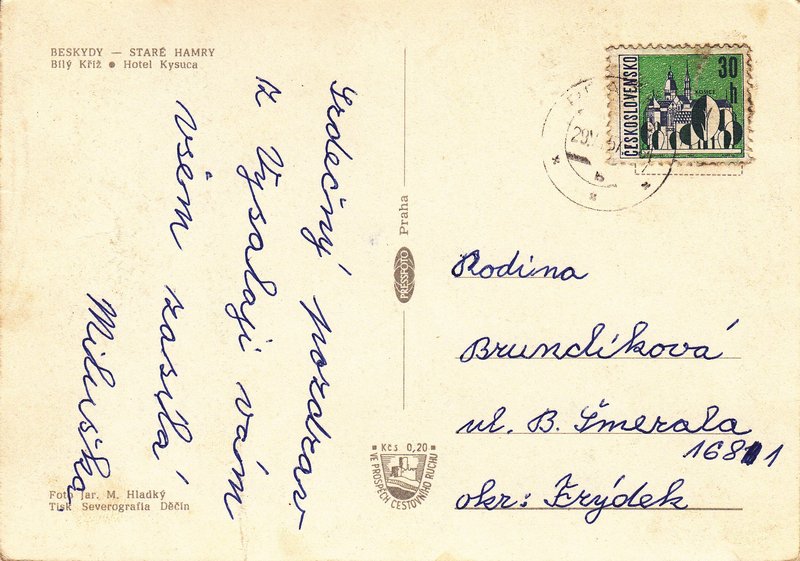 BESKYDY — STARÉ HAMRY
Bílý Kříž ● Hotel Kysuca
Srdečný pozdrav
z Vysalaji vám
všem zasílá
Miluška
Foto Jar. M. Hladký
Tisk Severografia Děčín
PRESSFOTO Praha
Kčs 0,20
VE PROSPĚCH CESTOVNÍHO RUCHU
ČESKOSLOVENSKO
30 h
KOŠICE
Rodina
Brundíková
ul. B. Šmerala
1681
okr: Frýdek